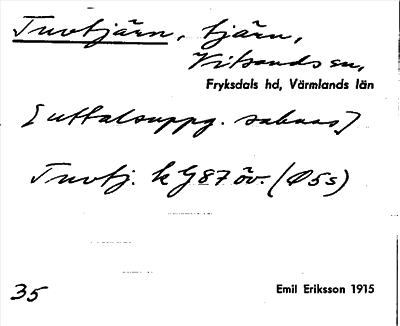 Tuvtjärn, tjärn,
Vitsands sn,
Fryksdals hd, Värmlands län
[uttalsuppg. saknas]
Tuvtj. k G 87 öv. (Ø5s)
35
Emil Eriksson 1915